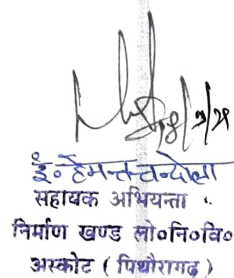 इं० हेमन्त चन्दोला
सहायक अभियन्ता
निर्माण खण्ड लो०नि०वि०
अस्कोट ( पिथौरागढ़ )